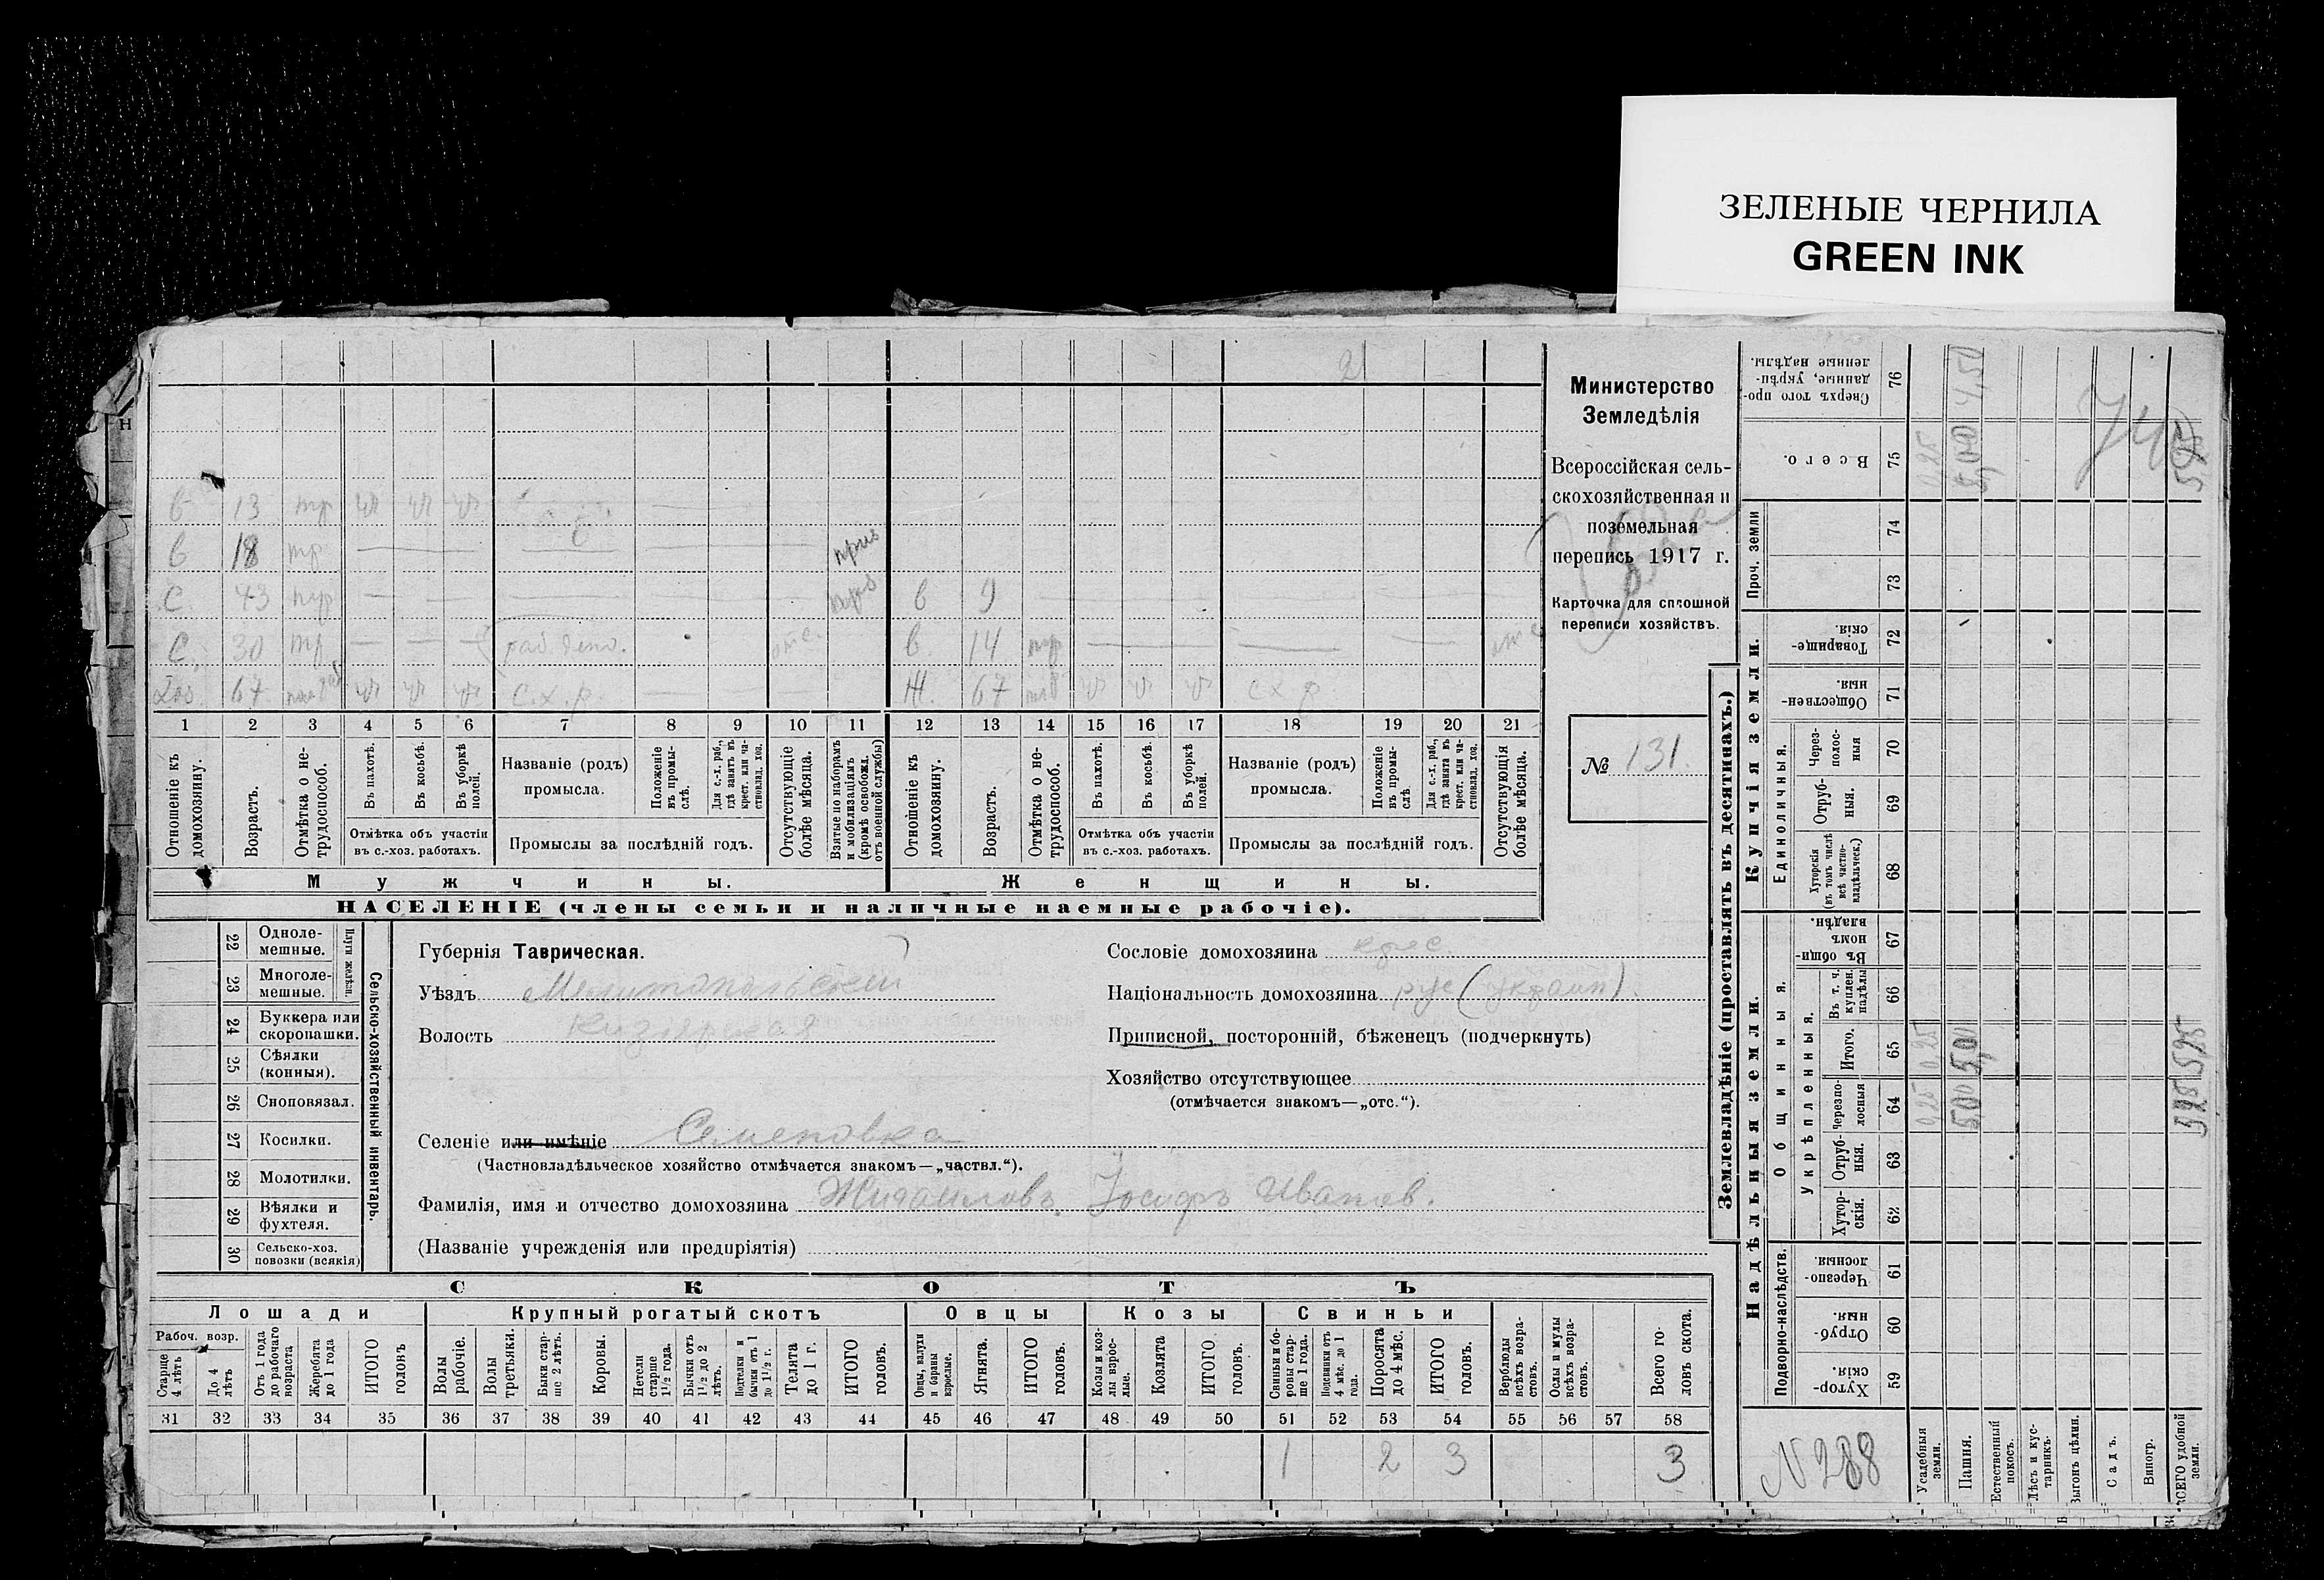 ЗЕЛЕНЫЕ ЧЕРНИЛА
GREEN INK
2
в 13 тр
в 18 тр
приз
С. 43 тр
в 9
С. 30 тр раб. отс.
в. 14
Хоз 67 С.х.р.
Ж. 67 с х р
1 2 3 4 5 6 7 8 9 10 11 12 13 14 15 16 17 18 19 20 21
Отношеніе къ домохозяину.
Возрастъ.
Отмѣтка о не-трудоспособ.
Въ пахотѣ.
Въ косьбѣ.
Въ уборкѣ полей.
Названіе (родъ) промысла.
Положеніе въ промы-слѣ.
Для с.-х. раб., гдѣ занятъ въ крест. или ча-стновлад. хоз.
Отсутствующіе болѣе мѣсяца.
Взятые по наборамъ и мобилизаціямъ (кромѣ освобожд. отъ военной службы)
Отношеніе къ домохозяину.
Возрастъ.
Отмѣтка о не-трудоспособ.
Въ пахотѣ.
Въ косьбѣ.
Въ уборкѣ полей.
Названіе (родъ) промысла.
Положеніе въ промы-слѣ.
Для с.-х. раб., гдѣ занята въ крест. или ча-стновлад. хоз.
Отсутствующія болѣе мѣсяца.
Отмѣтка объ участіи въ с.-хоз. работахъ.
Промыслы за послѣдній годъ.
Отмѣтка объ участіи въ с.-хоз. работахъ.
Промыслы за послѣдній годъ.
Мужчины.
Женщины.
НАСЕЛЕНІЕ (члены семьи и наличные наемные рабочіе).
Министерство
Земледѣлія
Всероссійская сель-
скохозяйственная и
поземельная
перепись 1917 г.
Карточка для сплошной
переписи хозяйствъ.
№ 131.
22 Одноле-мешные.
23 Многоле-мешные.
Плуги желѣзн.
24 Буккера или скоропашки.
25 Сѣялки (конныя).
26 Сноповязал.
27 Косилки.
28 Молотилки.
29 Вѣялки и фухтеля.
30 Сельско-хоз. повозки (всякія)
Сельско-хозяйственный инвентарь.
Губернія Таврическая.
Уѣздъ Мелитопольскій
Волость Кизіярская
Селеніе или имѣніе Семеновка
(Частновладѣльческое хозяйство отмѣчается знакомъ—„частвл.“).
Фамилія, имя и отчество домохозяина Іосифъ Иванов.
(Названіе учрежденія или предпріятія)
Сословіе домохозяина крес.
Національность домохозяина рус (украин).
Приписной, посторонній, бѣженецъ (подчеркнуть)
Хозяйство отсутствующее
(отмѣчается знакомъ—„отс.“).
СКОТЪ
Лошади
Крупный рогатый скотъ
Овцы
Козы
Свиньи
Рабоч. возр.
Старше 4 лѣтъ
До 4 лѣтъ
Отъ 1 года до рабочаго возраста
Жеребята до 1 года
ИТОГО головъ
Волы рабочіе.
Волы третьяки.
Быки стар-ше 2 лѣтъ.
Коровы.
Нетели старше 1½ года.
Бычки отъ 1½ до 2 лѣтъ.
Подтелки и бычки отъ 1 до 1½ г.
Телята до 1 г.
ИТОГО головъ.
Овцы, валухи и бараны взрослые.
Ягнята.
ИТОГО головъ.
Козы и коз-лы взрос-лые.
Козлята
ИТОГО головъ.
Свиньи и бо-ровы стар-ше 1 года.
Подсвинки отъ 4 мѣс. до 1 года.
Поросята до 4 мѣс.
ИТОГО головъ.
Верблюды всѣхъ возра-стовъ.
Ослы и мулы всѣхъ возра-стовъ.
Всего го-ловъ скота.
31 32 33 34 35 36 37 38 39 40 41 42 43 44 45 46 47 48 49 50 51 52 53 54 55 56 57 58
1 2 3 3
Землевладѣніе (проставлять въ десятинахъ.)
Купчія земли.
Надѣльныя земли.
Сверхъ того про-данные, укрѣп-ленные надѣлы. 76
Всего. 75
Проч. земли
74
73
Товарище-скія. 72
Обществен-ныя. 71
Единоличныя.
Через-полос-ныя 70
Отруб-ныя. 69
Хуторскія (въ томъ числѣ всѣ частно-владѣльческ.) 68
Общинныя.
Въ общин-номъ владѣн. 67
Укрѣпленныя.
Въ т. ч. куплен. надѣлы 66
Итого. 65
черезпо-лосныя 64
Отруб-ныя. 63
Хутор-скія. 62
Подворно-наслѣдств.
Черезпо-лосныя. 61
Отруб-ныя. 60
Хутор-скія. 59
N 288
Усадебныя земли. 0,25 0,25 0,25
Пашня. 5,00 5,00 5,00 4,50
Естественный покосъ.
Лѣсъ и кус-тарникъ.
Выгонъ цѣлин.
Садъ.
Виногр.
ВСЕГО удобной земли. 5,25 5,25